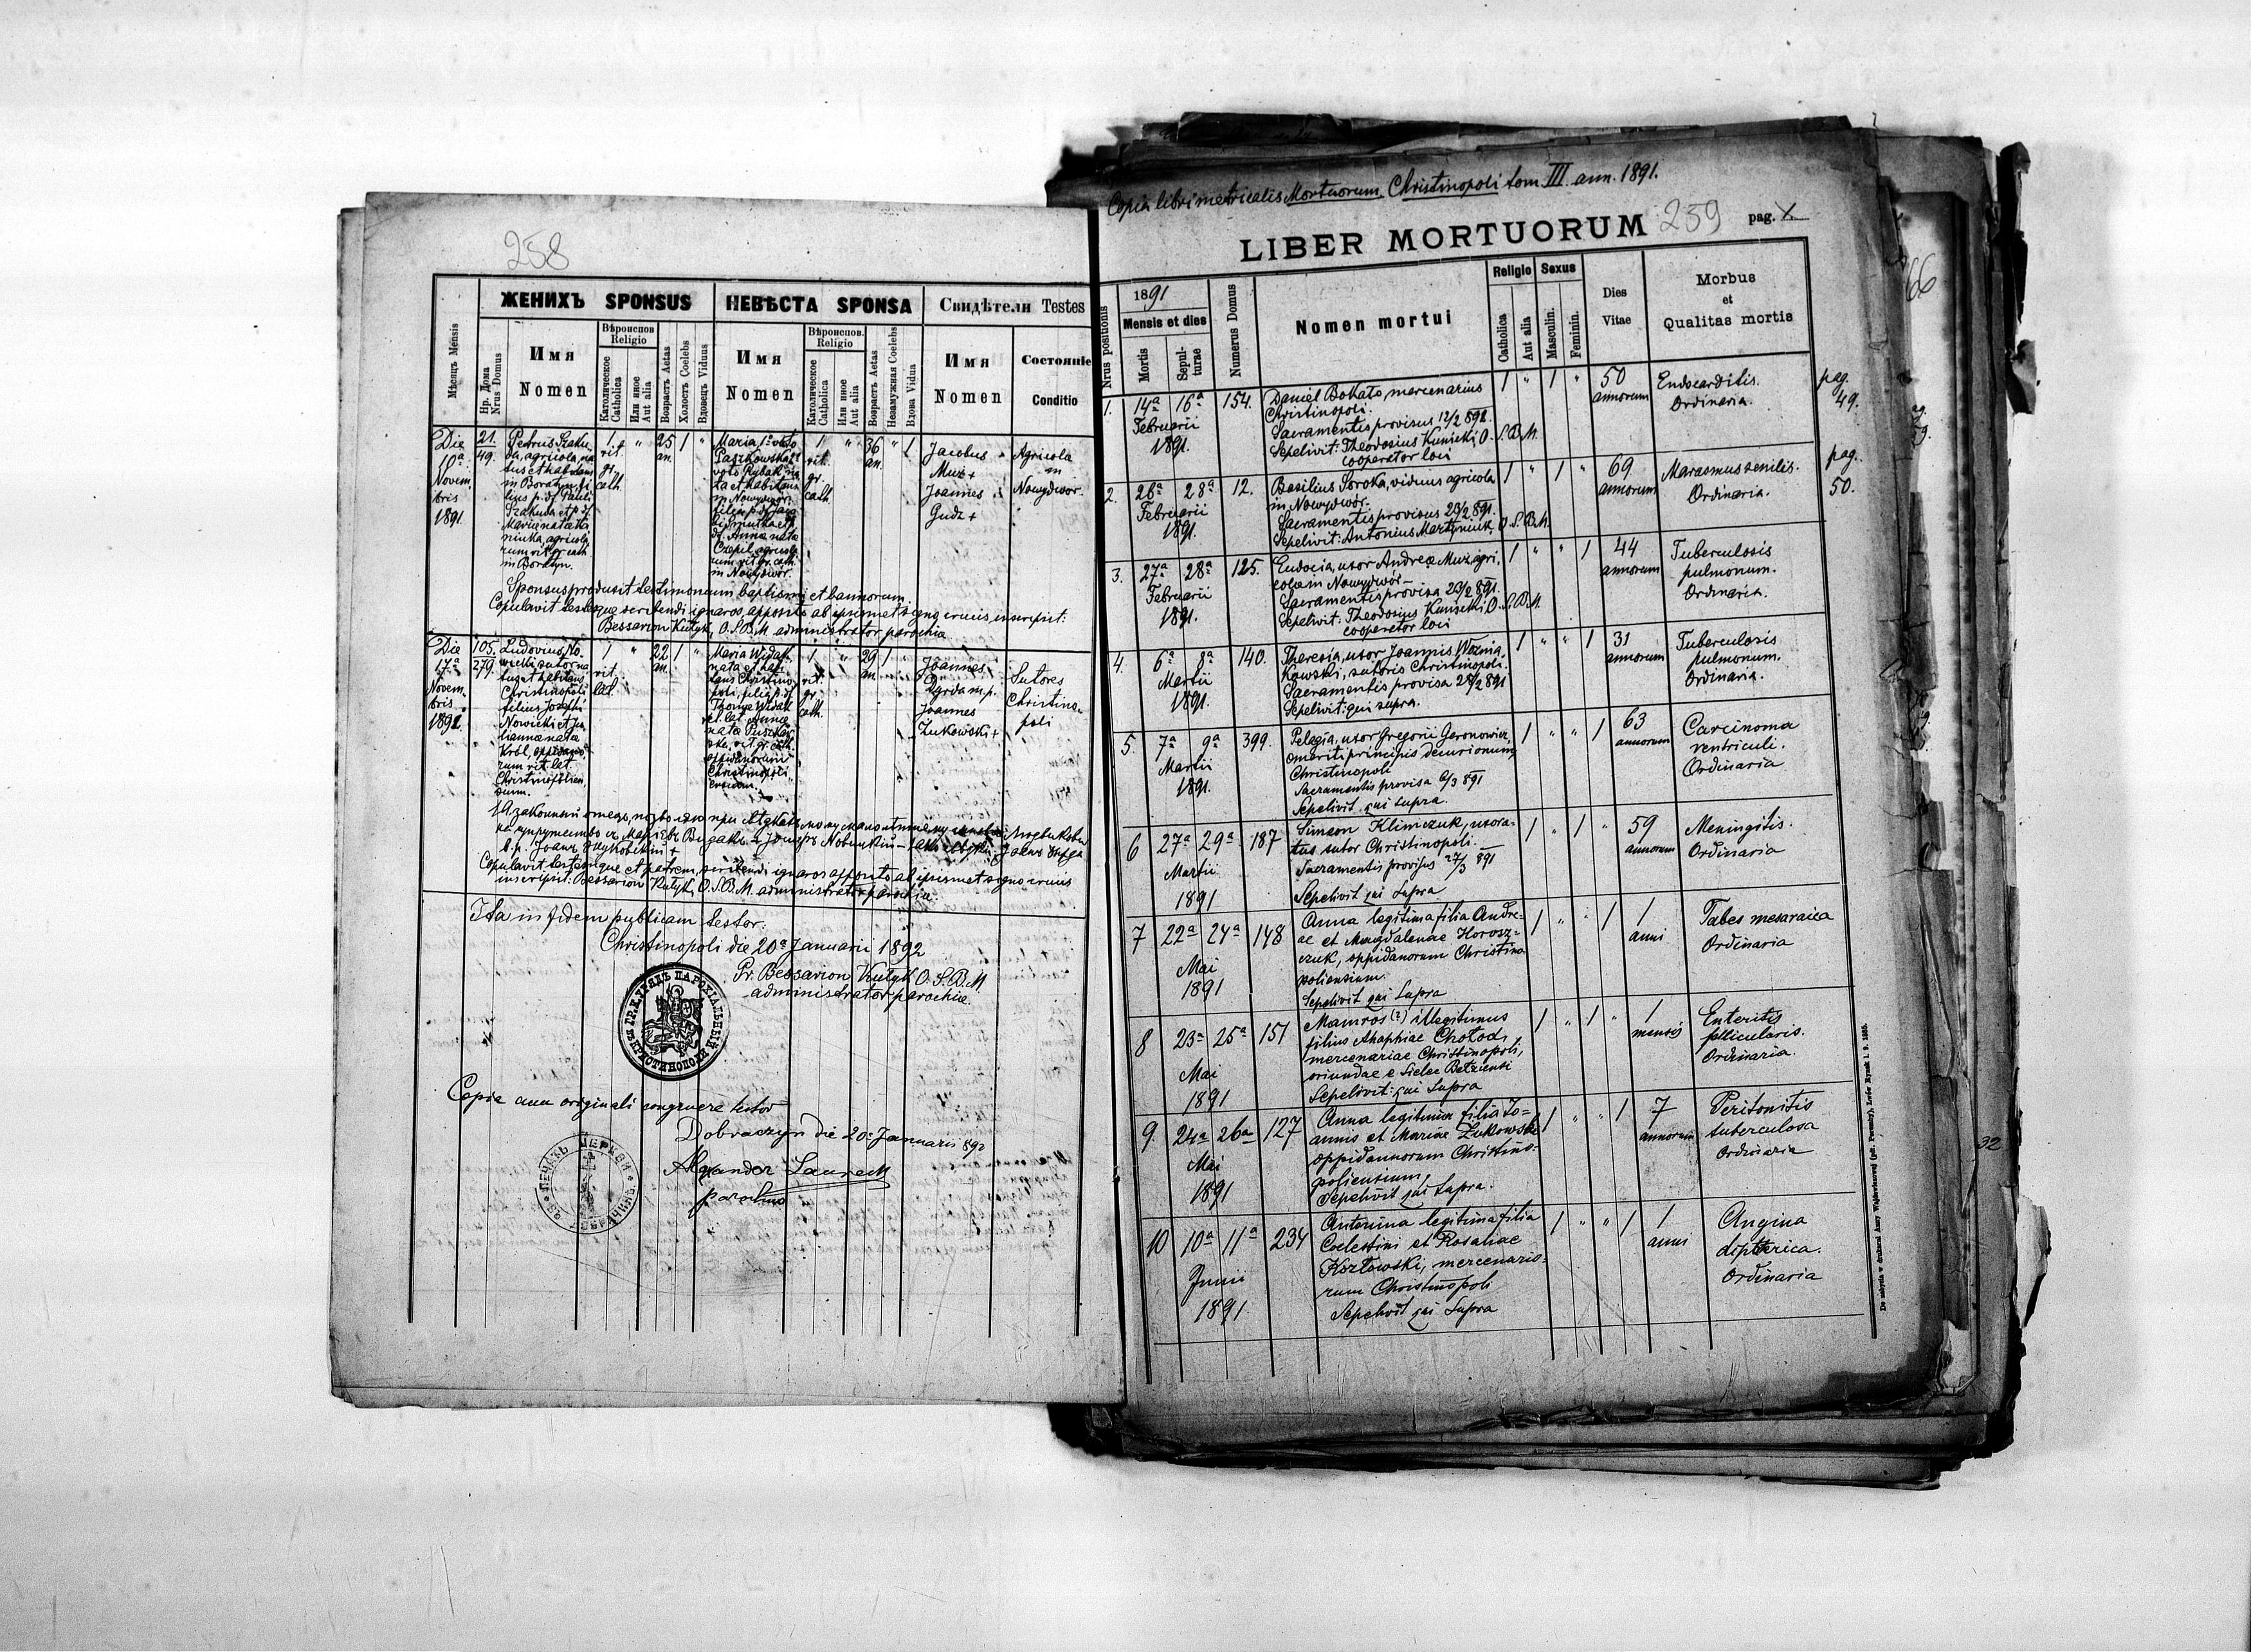 258
ЖЕНИХЪ SPONSUS
НЕВѢСТА SPONSA
Свидѣтели Testes
Мѣсяцъ Mensis
Нр. Дома
Nrus Domus
Имя
Nomen
Вѣроиспов.
Religio
Католическое
Catholica
Или иное
Aut alia
Возрастъ Aetas
Холостъ Coelebs
Вдовецъ Viduus
Имя
Nomen
Вѣроиспов.
Religio
Католическое
Catholica
Или иное
Aut alia
Возрастъ Aetas
Незамужная Coelebs
Вдова Vidua
Имя
Nomen
Состояніе
Conditio
Die
10ª
Novem
bris
1891
21.
49.
Petrus Szaku
da, agricola, na
tus et habitans
in Boratyn, fi
lius p. df. Pauli
Szakuda et p. df.
Mariae natae
agricola
rum rit. gr. cath.
in Boratyn.
1
rit.
gr.
cath.
"
25
an.
1
"
Maria 1º voto
Paszkowska 2º
voto Rybak na
ta et habitans
in Nowydwór
filia p. df. Jaco
df. Annae nata
Czepil, agricola
rum rit. gr. cath.
in Nowydwór.
1
rit.
gr.
cath.
"
36
an.
"
1
Jacobus
Muz +
Joannes
Gudz +
Agricola
in
Nowydwor.
Sponsus produxit testimonium baptismi et bannorum.
Copulavit testesque scribendi ignaros, apposito ab ipsismet signo crucis, inscripsit:
Bessarion Kutyk, O.S.B.M. administrator parochiae
Die
17ª
Novem
bris
1892
105.
279.
Ludovicus No
wicki, sutor na
tus et habitans
Christinopoli
filius Josephi
Nowicki et Ju
lianna nata
Król, oppidano
rum rit. lat.
Christinopolien
sium.
1
rit.
lat.
"
22
an.
1
"
Maria Widak
nata et habi
tans Christino
poli, filia p. df.
Thomae Widak
rit. lat. Annae
rit. gr. cath.
oppidanorum
Christinopoli
ensium.
1
rit.
gr.
cath.
"
29
an.
1
Joannes
Dyrda m.p.
Joannes
Żukowski +
Sutores
Christino
poli
Copulavit testesque et patrem, scribendi ignaros apposito ab ipsismet signo crucis
inscripsit: Bessarion Kutyk, O.S.B.M. administrator parochiae.
Ita in fidem publicam testor.
Christinopoli die 20ª Januarii 1892
Gr. Bessarion Kutyk O.S.B.M.
administrator parochiae.
Copia cum originali congruere testor
Dobraczyn die 20. Januarii 892
Alexander Laurecki
parochus
Copia libri metricalis Mortuorum Christinopoli tom. III ann. 1891.
LIBER MORTUORUM
259
pag.
Nrus positionis
1891
Mensis et dies
Mortis
Sepul-
turae
Numerus Domus
Nomen mortui
Religio
Catholica
Aut alia
Sexus
Masculin.
Feminin.
Dies
Vitae
Morbus
et
Qualitas mortis
1.
14ª
16ª
Februarii
1891.
154.
Daniel Bohato mercenarius
Christinopoli.
Sacramentis provisus 12/2 892
Sepelivit: Theodosius Kunicki, O.S.B.M.
cooperator loci
1 " 1 "
50
annorum
Endocarditis.
Ordinaria.
pag.
49.
2.
26ª
28ª
Februarii
1891.
12.
Basilius Soroka, viduus agricola
in Nowydwór.
Sacramentis provisus 25/2 891.
Sepelivit: Antonius Martyniuk, O.S.B.M.
1 " 1 "
69
annorum
Marasmus senilis.
Ordinaria.
pag.
50.
3.
27ª
28ª
Februarii
1891.
125.
Eudocia, uxor Andreae Muz, agri
colae in Nowydwór —
Sacramentis provisa 23/2 891.
Sepelivit: Theodosius Kunicki, O.S.B.M.
cooperator loci
1 " " 1
44
annorum
Tuberculosis
pulmonum.
Ordinaria.
4.
6ª
8ª
Martii
1891.
140.
Theresia, uxor Joannis Woznia
kowski, sutoris Christinopoli.
Sacramentis provisa 28/2 891
Sepelivit: qui supra.
1 " " 1
31
annorum
Tuberculosis
pulmonum.
Ordinaria.
5.
7ª
9ª
Martii
1891.
399.
Pelagia, uxor Gregorii Geronowicz,
emeriti principis decurionum
Christinopoli
Sacramentis provisa 6/3 891
Sepelivit qui supra.
1 " " 1
63
annorum
Carcinoma
ventriculi.
Ordinaria
6
27ª
29ª
Martii
1891
187
Simeon Klimczuk, uxora-
tus sutor Christinopoli.
Sacramentis provisus 27/3 891
Sepelivit qui supra
1 " 1 "
59
annorum
Meningitis.
Ordinaria
7
22ª
24ª
Mai
1891
148
Anna legitima filia Andre-
ae et Magdalenae Horosz-
czuk, oppidanorum Christino
poliensium.
Sepelivit qui supra
1 " " 1
1
anni
Tabes mesaraica
Ordinaria
8
23ª
25ª
Mai
1891
151
Mamros (?) illegitimus
filius Ahaphiae Chołod,
mercenariae Christinopoli,
oriundae e Sielec Bełziensi
Sepelivit: qui supra
1 " 1 "
1
mensis
Enteritis
follicularis.
Ordinaria.
9.
24ª
26ª
Mai
1891
127
Anna legitima filia Jo=
annis et Mariae Żukowski
oppidannorum Christino-
poliensium,
Sepelivit qui supra.
1 " " 1
7
annorum
Peritonitis
tuberculosa
Ordinaria
10
10ª
11ª
Junii
1891.
234
Antonina legitima filia
Coelestini et Rosaliae
Kozłowski, mercenario-
rum Christinopoli
Sepelivit qui supra
1 " " 1
1
anni
Angina
dipterica.
Ordinaria
66
32